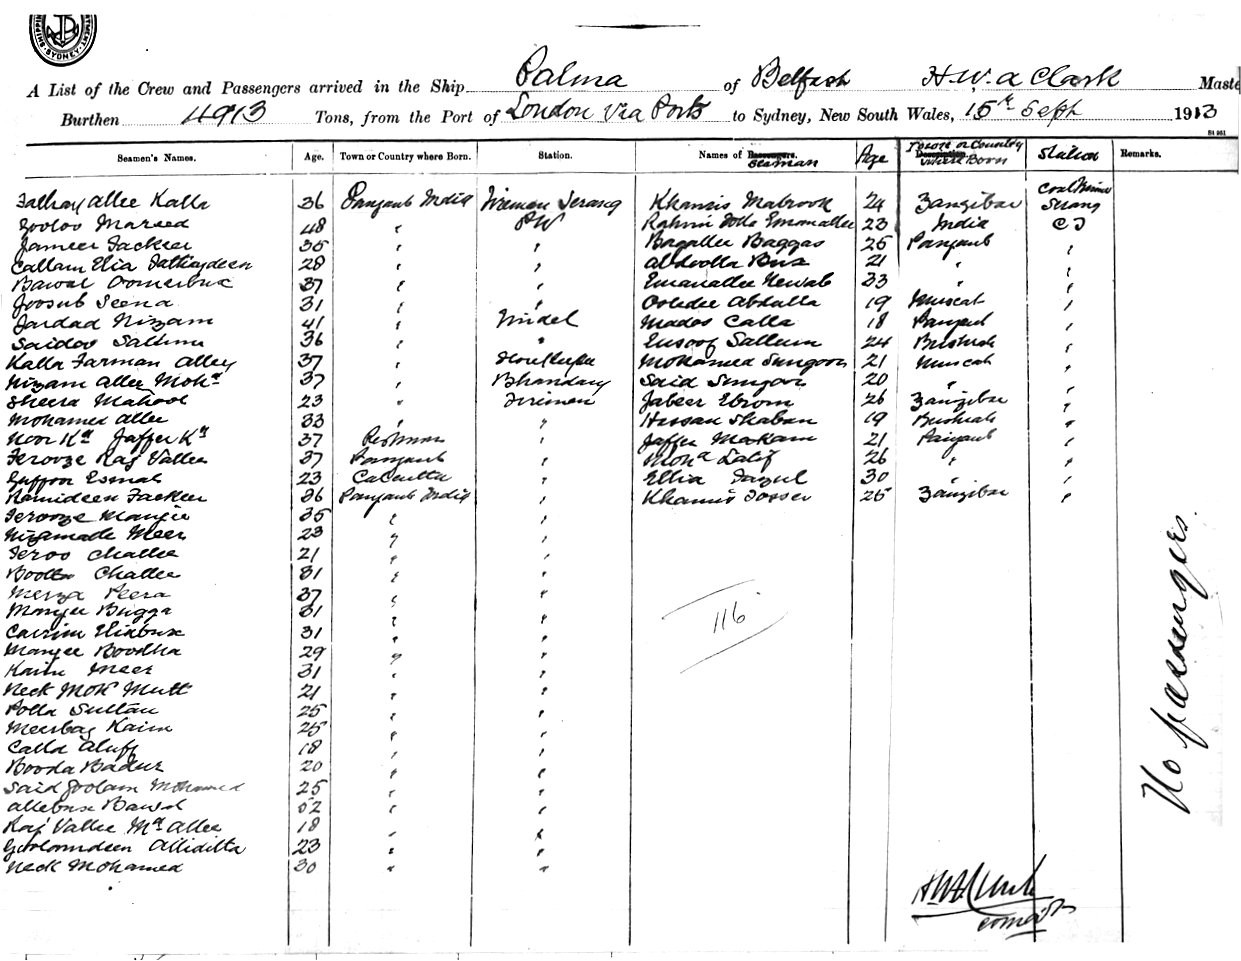 SYDNEY
A List of the Crew and Passengers arrived in the Ship Palma of Belfast H. W. A Clark Maste
Burthen 4913 Tons, from the Port of London Via Ports to Sydney, New South Wales, 15th Sept 1913
Seamen's Names. Age. Town or Country where Born. Station. Names of Passengers. Seaman Age Description Town or Country where Born Station Remarks.
Fathay Allee Kalla 36 Panjaub India Fireman Serang Khamis Mabrook 24 Zanzibar Coal Serang
Gooloo Mareed 48 " Rahim 23 India C T
Jameer Fackeer 35 " " Bagallee Baggas 25 Panjaub "
Callam Elia Fathaydeen 28 " " Abdoolla Bux 21 " "
Bawal Oomerbux 37 " " Emanallee Newab 33 " "
Joosub Seena 31 " " Abdulla 19 Muscat "
Jaidad Nizam 41 " Tindel Mados Calla 18 Panjaub "
Saidoo Sallim 36 " " Eusoof Sallum 24 Bushish "
Kalla Farman Alley 37 " Mohamed Sungoor 21 Muscat "
Nizam Allee Mohd 37 " Bhandary Said Sungoor 20 " "
Sheera Mahool 23 " Firemen Jabeer Ebrom 26 Zanzibar "
Mohamed Allee 33 " " Hassan Shaban 19 Bushish "
Noor Kn Jaffer Kn 37 " Jaffer Makam 21 Panjaub "
Ferooze Raj Vallee 37 Panjaub " Mohd Latif 26 " "
Guffoor Esmal 23 Calcutta " Ellia Fazul 30 " "
Ramideen Fackeer 26 Panjaub India " Khamis Tosser 25 Zanzibar "
Ferooze Manjee 35 " "
Nizamade Meer 23 " "
Feroo Challee 21 " "
Boolla Challee 31 " "
Merza Peera 37 " "
Manjee Bugga 31 " "
Carrim Eliabux 31 " "
116
Manjee Boodha 29 " "
Kaim Meer 31 " "
Neck Moh Mutt 21 " "
Polla Sultan 25 " "
Meerbaz Kaim 25 " "
Calla Aluff 18 " "
Booda Badur 20 " "
Said Goolam Mohamed 25 " "
Allebux Bawal 52 " "
Raj Vallee Md Allee 18 " "
Goolamdeen Alliditta 23 " "
Neck Mohamed 30 " "
No passengers.
H W A Clark